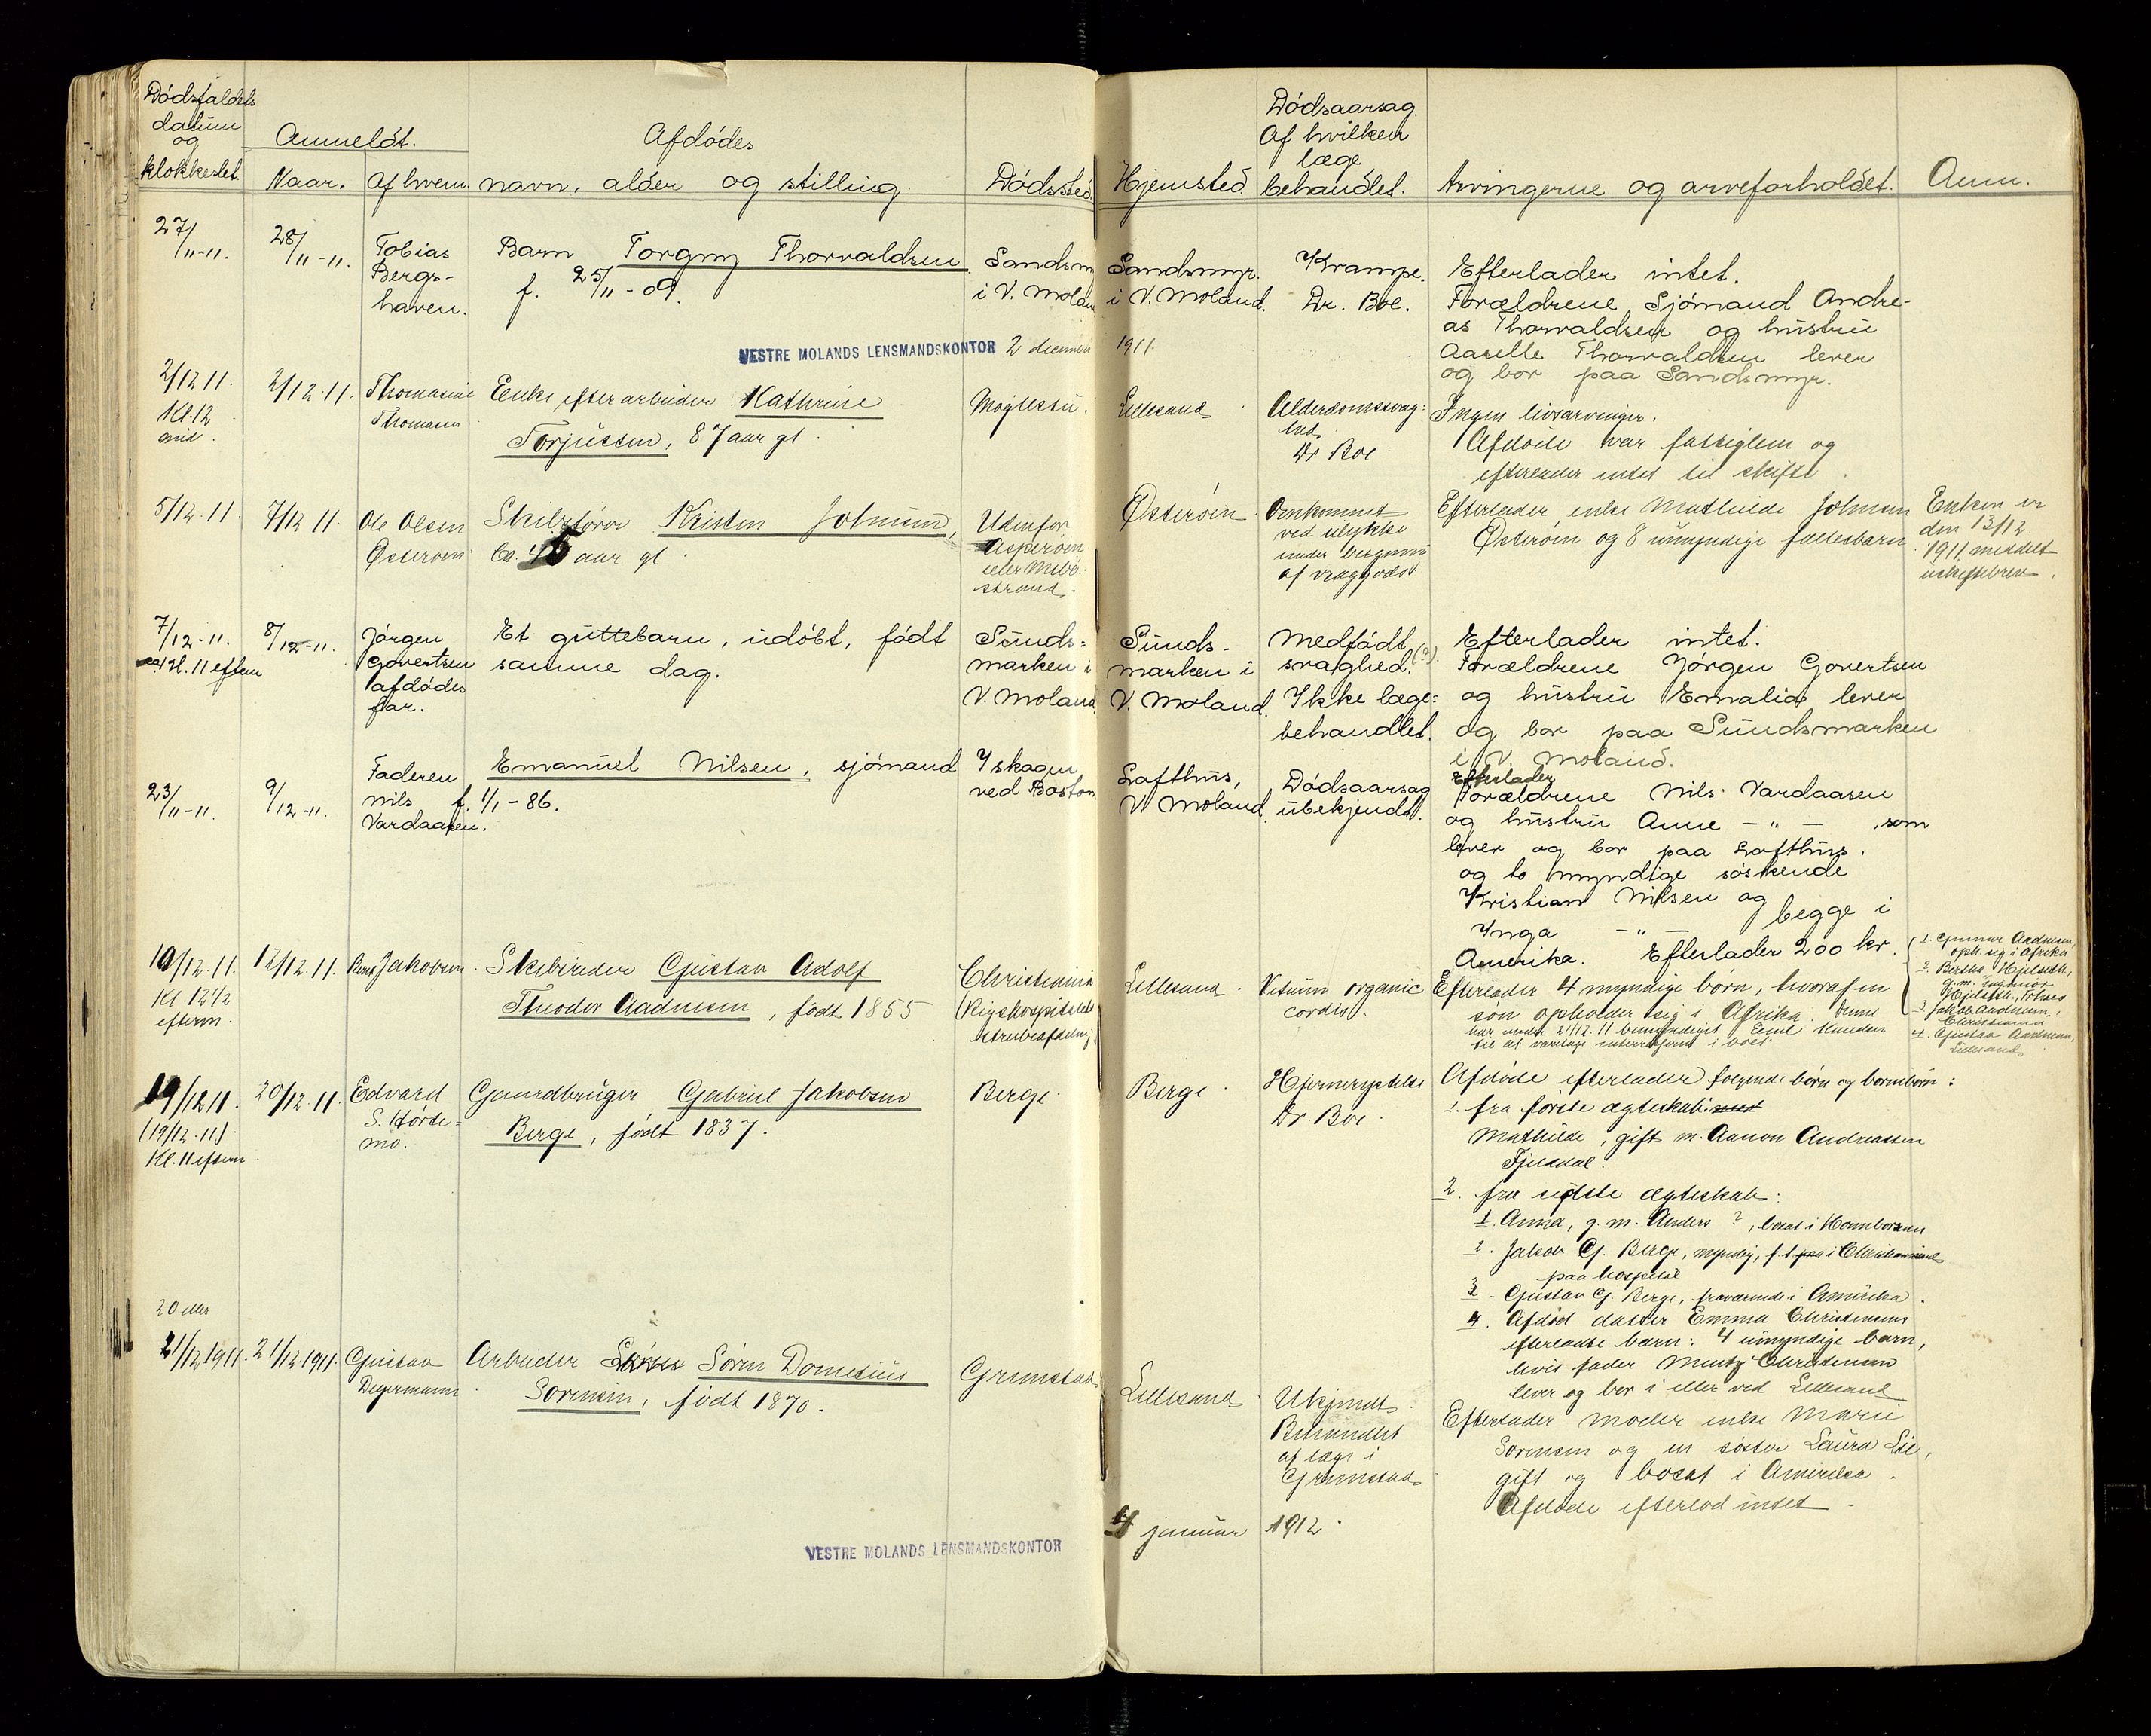 Dödsfaldets
datum
og
klokkeslet.
Anmeldt.
Naar.
Af hvem.
Afdödes
navn, alder og stilling.
Dödssted.
Hjemsted.
Dödsaarsag.
Af hvilken
læge
behandlet.
Arvingerne og arveforholdet.
Anm.
27/11-11.
28/11-11.
Tobias
Bergs-
haven.
Barn Torgny Thorvaldsen
f. 25/11-09.
Sandsmy
i V. Moland
Sandsmyr.
i V. Moland.
Krampe.
Dr. Boe.
Efterlader intet.
Forældrene Sjömand Andre-
as Thorvaldsen og hustru
Aaselle Thorvaldsen lever
og bor paa Sandsmyr.
VESTRE MOLANDS LENSMANDSKONTOR 2 december 1911.
2/12 11.
Kl. 12
mid.
2/12.11.
Thomasine
Thomasen
Enke efter arbeider Kathrine
Torjussen, 87 aar gl.
Moglestu.
Lillesand
Alderdomssvag-
hed.
Dr Boe
Ingen livsarvinger.
Afdöde var fattiglem og
efterlader intet til skifte.
5/12.11.
7/12 11.
Ole Olsen
Österöen
Skibsförer Kristen Johnsen,
Ca. 45 aar gl.
Udenfor
Asperöen
eller Mebö-
strand.
Østeröen
Omkommet
ved ulykke
under bergning
af vraggods
Efterlader enke Mathilde Johnsen
Østeröen og 8 umyndige fællesbarn.
Enken er
den 13/12
1911 meddelt
uskiftebrev.
7/12-11.
ca. kl. 11 eftm
8/12-11.
Jörgen
Govertsen
afdödes
far.
Et guttebarn, udöbt, födt
samme dag.
Sunds-
marken i
V. Moland.
Sunds-
marken i
V. Moland.
Medfödt
svaghed.(?)
Ikke læge-
behandlet.
Efterlader intet.
Forældrene Jörgen Govertsen
og hustru Emalia lever
og bor paa Sundsmarken
i V. Moland.
23/11-11.
9/12-11.
Faderen
Nils
Vardaasen.
Emanuel Nilsen, sjömand
f. 1/1-86.
I skogen
ved Boston.
Lofthus,
V. Moland.
Dödsaarsag
ubekjendt.
Efterlader
Forældrene Nils Vardaasen
og hustru Anne - " - , som
lever og bor paa Lofthus.
og to myndige söskende
Kristian Nilsen og
Inga - " - begge i
Amerika. Efterlader 200 kr.
10/12.11.
Kl. 12 1/2
efterm.
12/12.11.
Jakobsen
Skibsreder Gustav Adolf
Theodor Aadnesen, födt 1855
Christiania
(Rigshospitalets
strubeafdeling)
Lillesand.
Vitium organic
cordis.
Efterlader 4 myndige börn, hvoraf en
sön opholder sig i Afrika. Denne
har under 21/12.11 bemyndiget Emil Knudsen
til at varetage interesserne i boet.
1. Gunnar Aadnesen,
oph. sig i Afrika
2. Bertha Hjelseth,
g.m. ingeniør
Hjelseth,
3 Jakob Aadnesen,
Christiania
4. Gustav Aadnesen,
Lillesand
19/12 11.
(19/12.11).
Kl. 11 eftm.
20/12.11.
Edvard
S. Hörte-
mo.
Gaardbruger Gabriel Jakobsen
Berge, födt 1837.
Berge.
Berge.
Hjernerystelse
Dr Boe.
Afdöde efterlader fölgende börn og barnebörn:
1. fra förste ægteskab:
Mathilde, gift m. Aanon Andreassen
Fjeldal.
2. fra sidste ægteskab:
1. Anna, g. m. Anders ?, bosat i Homborsun
2. Jakob G. Berge, myndig, f.t. i Christiansand
paa hospital
3. Gustav G. Berge, fraværende i Amerika.
4. Afdød datter Emma Christensens
efterladte barn: 4 umyndige barn,
hvis fader Mentz Christensen
lever og bor i eller ved Lillesand
20 eller
21/12 1911.
21/12.1911.
Gustav
Degermann
Arbeider Sören Domesius
Sörensen, födt 1870.
Grimstad
Lillesand
Ukjendt.
Behandlet
af læge i
Grimstad
Efterlader moder enke Marie
Sörensen og en söster Laura Lie,
gift og bosat i Amerika.
Afdöde efterlod intet.
VESTRE MOLANDS LENSMANDSKONTOR 4 januar 1912.